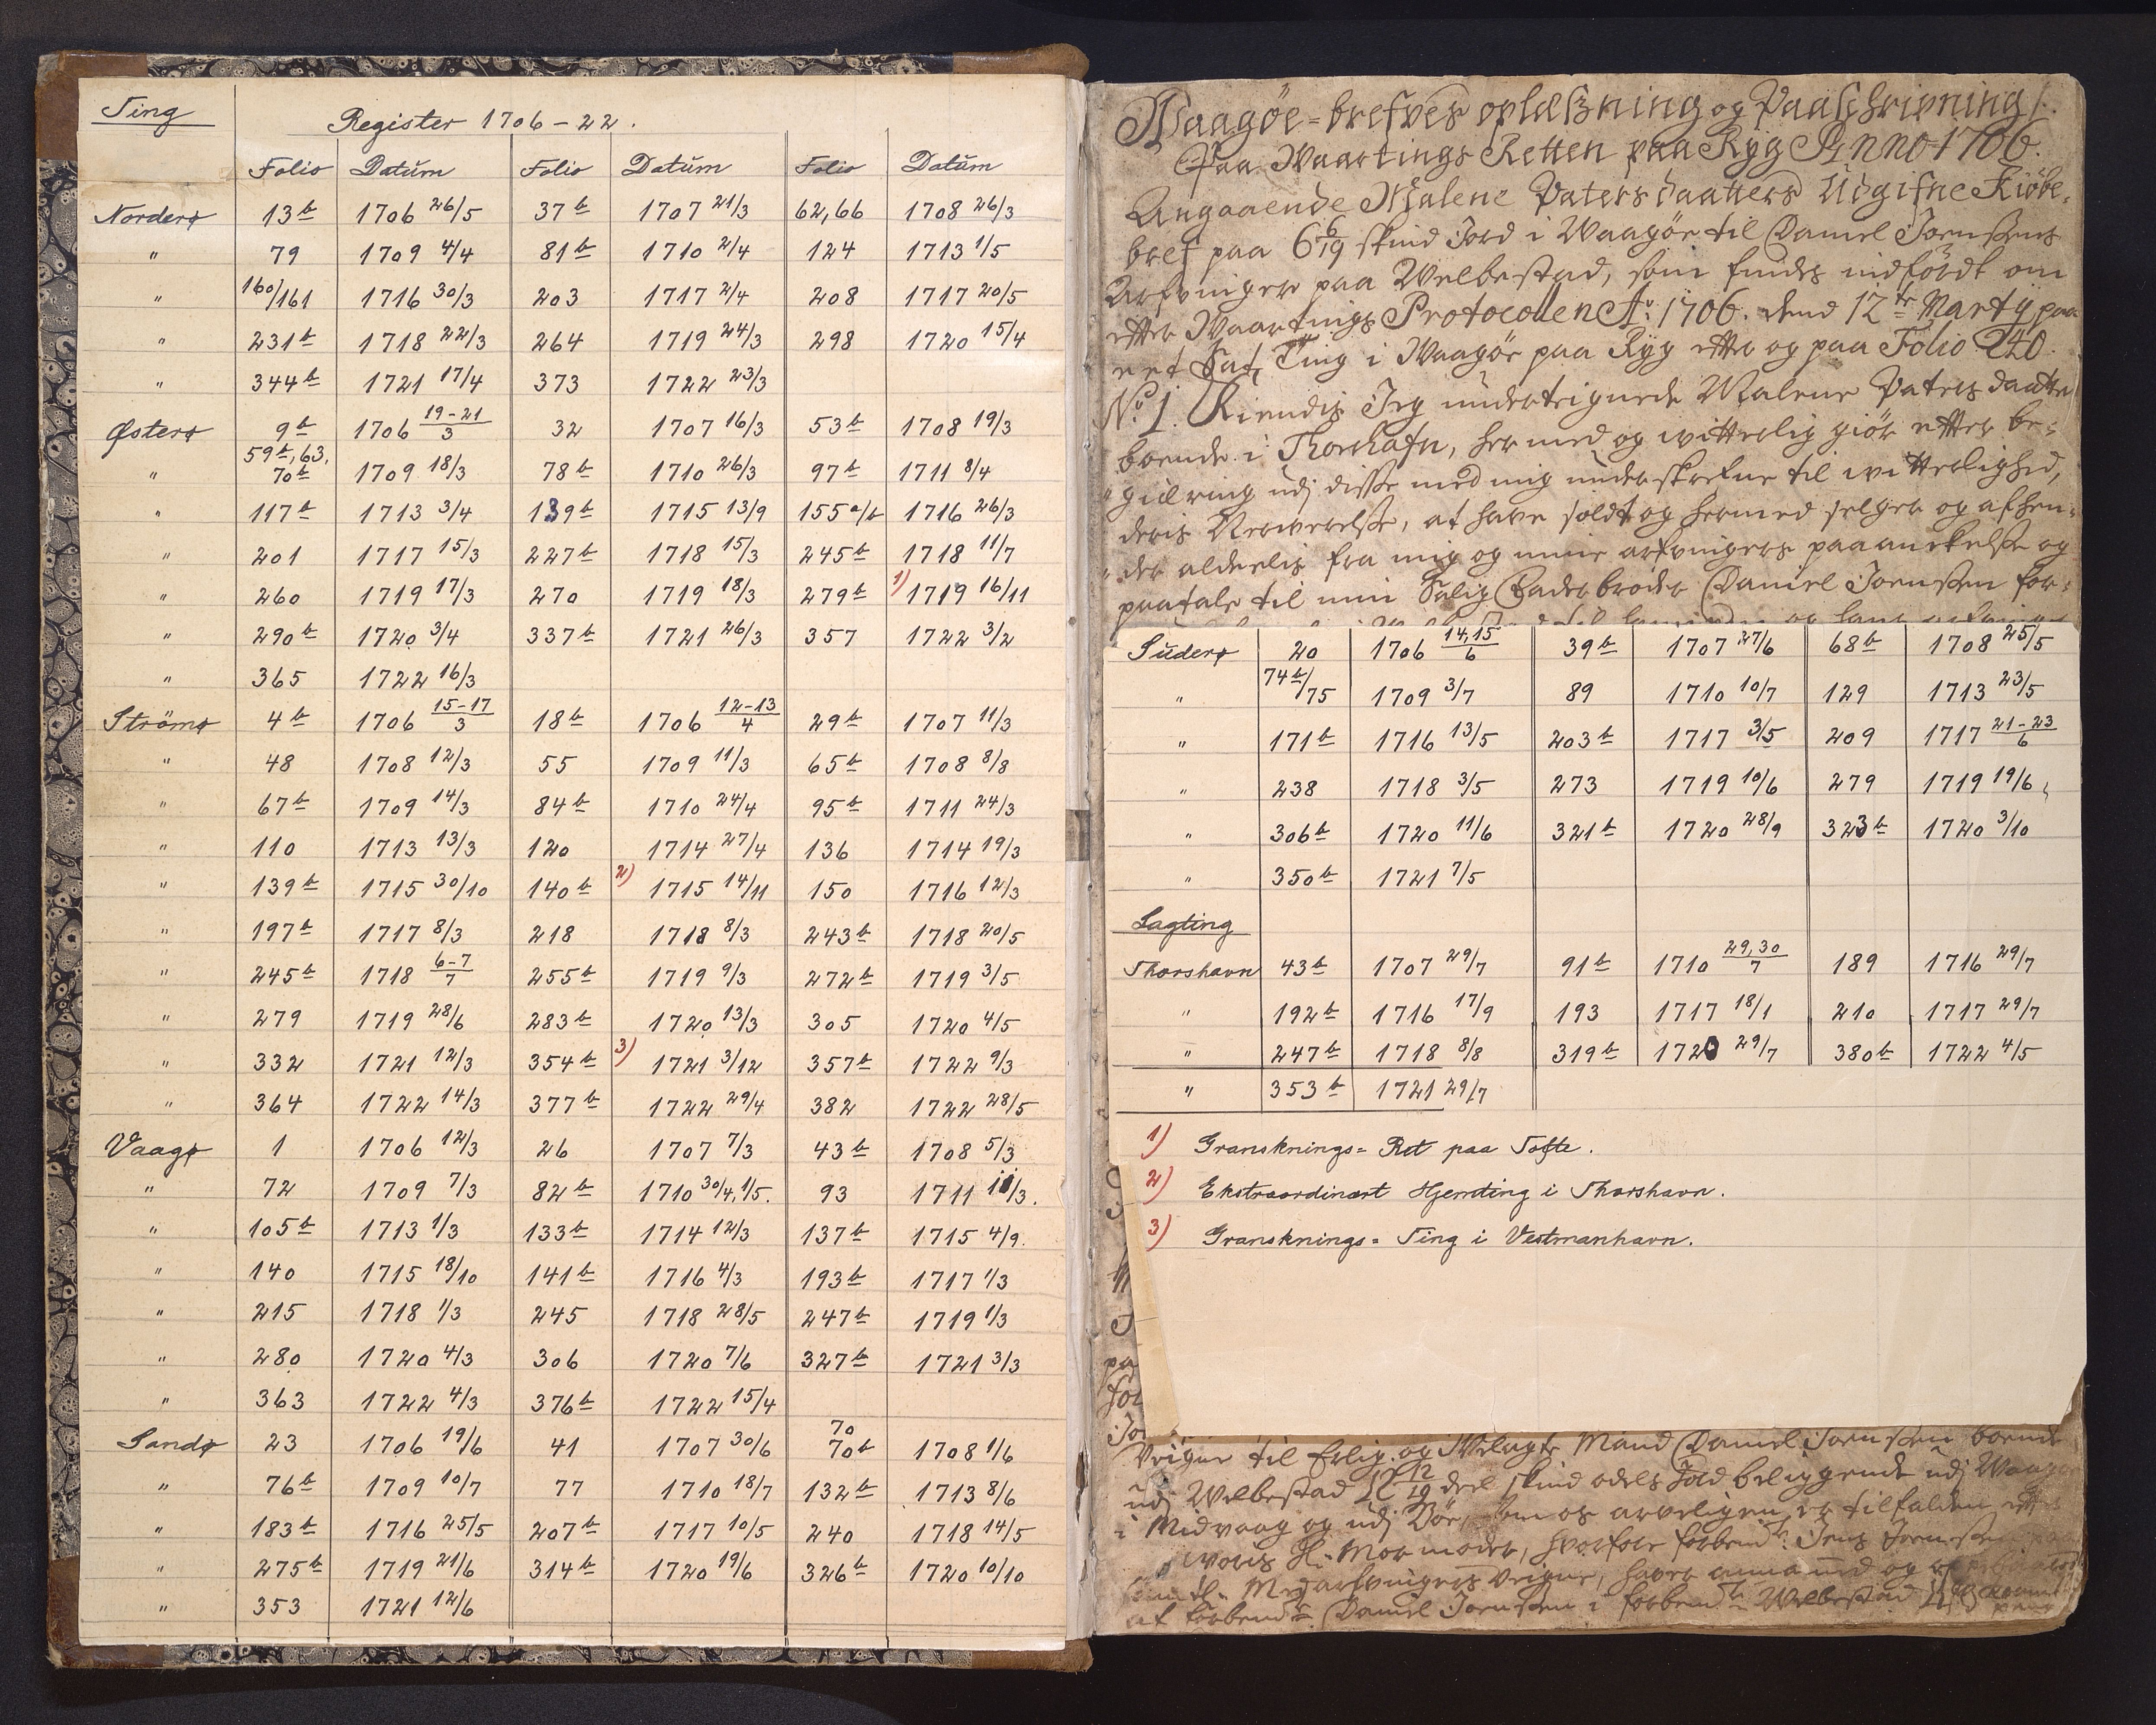 Ting
Register 1706-22.
Folio Datum Folio Datum Folio Datum
Norderø 13b 1706 26/5 37b 1707 21/3 62,66 1708 26/3
" 79 1709 4/4 81b 1710 2/4 124 1713 1/5
" 160/161 1716 30/3 203 1717 2/4 208 1717 20/5
" 231b 1718 22/3 264 1719 24/3 298 1720 15/4
" 344b 1721 17/4 373 1722 23/3
Østerø 9b 1706 19-21/3 32 1707 16/3 53b 1708 19/3
" 59b, 63, 70b 1709 18/3 78b 1710 26/3 97b 1711 8/4
" 117b 1713 3/4 139b 1715 13/9 155a/b 1716 26/3
" 201 1717 15/3 227b 1718 15/3 245b 1718 11/7
" 260 1719 17/3 270 1719 18/3 279b 1) 1719 16/11
" 290b 1720 3/4 337b 1721 26/3 357 1722 3/2
" 365 1722 16/3
Strömø 4b 1706 15-17/3 18b 1706 12-13/4 29b 1707 11/3
" 48 1708 12/3 55 1709 11/3 65b 1708 8/8
" 67b 1709 14/3 84b 1710 24/4 95b 1711 24/3
" 110 1713 13/3 120 1714 27/4 136 1714 19/3
" 139b 1715 30/10 140b 2) 1715 14/11 150 1716 12/3
" 197b 1717 8/3 218 1718 8/3 243b 1718 20/5
" 245b 1718 6-7/7 255b 1719 9/3 272b 1719 3/5
" 279 1719 28/6 283b 1720 13/3 305 1720 4/5
" 332 1721 12/3 354b 3) 1721 3/12 357b 1722 9/3
" 364 1722 14/3 377b 1722 29/4 382 1722 28/5
Vaagø 1 1706 12/3 26 1707 7/3 43b 1708 5/3
" 72 1709 7/3 82b 1710 30/4, 1/5. 93 1711 11/3.
" 105b 1713 1/3 133b 1714 12/3 137b 1715 4/9.
" 140 1715 18/10 141b 1716 4/3 193b 1717 1/3
" 215 1718 1/3 245 1718 28/5 247b 1719 1/3
" 280 1720 4/3 306 1720 7/6 327b 1721 3/3
" 363 1722 4/3 376b 1722 15/4
Sandø 23 1706 19/6 41 1707 30/6 70 70b 1708 1/6
" 76b 1709 10/7 77 1710 18/7 132b 1713 8/6
" 183b 1716 25/5 207b 1717 10/5 240 1718 14/5
" 275b 1719 21/6 314b 1720 19/6 326b 1720 10/10
" 353 1721 12/6
Waagøe=brefves oplæsning og Paaschrivning/.
Paa Waartings Retten paa Ryg Anno 1706.
Angaaende Malene Paters daatters Udgifne Kiøbe=
bref paa 6 6/19 skind Jord i Waagöe til Daniel Joenssens
Arfvinger paa Welbestad, som findes indfördt om
etter Waartings Protocollen Ao: 1706. dend 12te Marty paa
eet Sat Ting i Waagöe paa Ryg etter og paa Folio 240.
No 1. Kiendis Jeg undertegnede Malene Paters daatter
boende i Thorshafn, her med og witterlig giör etter be=
giæring udj disse med mig underskrefne til witterlighed,
deris Nerwerelse, at have soldt og hermed selger og afhen=
der aldeelis fra mig og mine arfvingers paaanckelse og
paatale til min Salig Faderbroder Daniel Joenssen for=
Suderø 20 1706 14,15/6 39b 1707 27/6 68b 1708 25/5
" 74b/75 1709 3/7 89 1710 10/7 129 1713 23/5
" 171b 1716 13/5 203b 1717 3/5 209 1717 21-23/6
" 238 1718 3/5 273 1719 10/6 279 1719 19/6
" 306b 1720 11/6 321b 1720 28/9 323b 1720 3/10
" 350b 1721 7/5
Lagting
Thorshavn 43b 1707 29/7 91b 1710 29,30/7 189 1716 29/7
" 192b 1716 17/9 193 1717 18/1 210 1717 29/7
" 247b 1718 8/8 319b 1720 29/7 380b 1722 4/5
" 353b 1721 29/7
1) Gransknings= Ret paa Tofte.
2) Ekstraordinært Hjemting i Thorshavn.
3) Gransknings= Ting i Vestmanhavn.
Veigne til Erlig og Welagte Mand Daniel Joenssen boende
udj Welbestad 12/19 deel skind odels Jord beliggende udj Waagöe
i Midvaag og udj Böe, som os arveligen er tilfalden etter
woris Sl: Mormoder, hvorfore forbemte: Jens Joenssen
Medarfvingers veigne, haver annammed og
af forbemte Daniel Joenssen i forbemte Welbestad